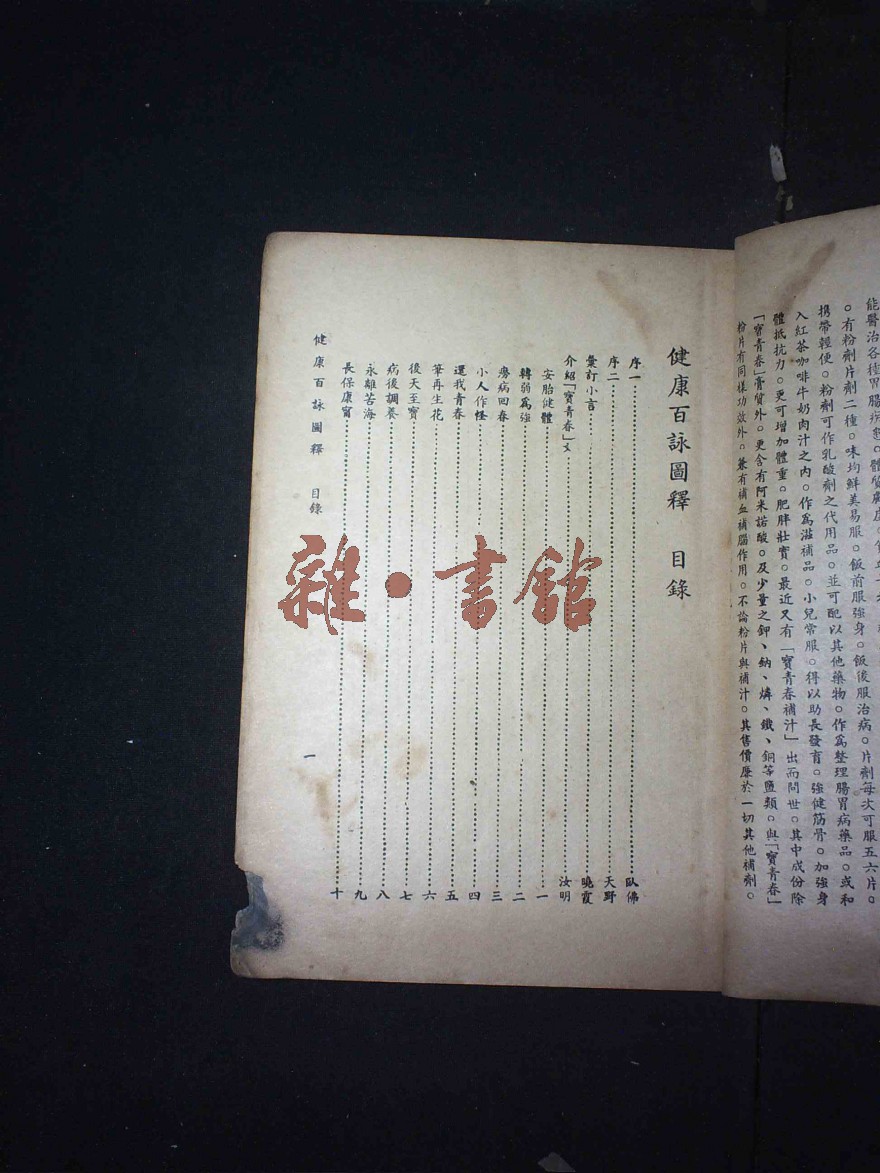 能醫治各種胃腸病
。有粉劑片劑二種。味均鮮美易服。飯前服強身。飯後服治病。片劑每次可服五六片。
携帶輕便。粉劑可作乳酸劑之代用品。並可配以其他藥物。作爲整理腸胃病藥品。或和
入紅茶咖啡牛奶肉汁之內。作爲滋補品。小兒常服。得以助長發育。強健筋骨。加強身
體抵抗力。更可增加體重。肥胖壯實。最近又有「寶青春補汁」出而問世。其中成份除
「寶青春」膏質外。更含有阿米諾酸。及少量之鉀、鈉、燐、鐵、銅等鹽類。與「寶青春」
粉片有同樣功效外。兼有補血補腦作用。不論粉片與補汁。其售價廉於一切其他補劑。
健康百詠圖釋 目錄
序一 臥佛
序二 天野
彙訂小言 曉霞
介紹「寶青春」文 汝明
安胎健體 一
轉弱爲強 二
癆病回春 三
小人作怪 四
還我青春 五
筆再生花 六
後天至寶 七
病後調養 八
永離苦海 九
長保康甯 十
健康百詠圖釋 目錄
一
雜·書館